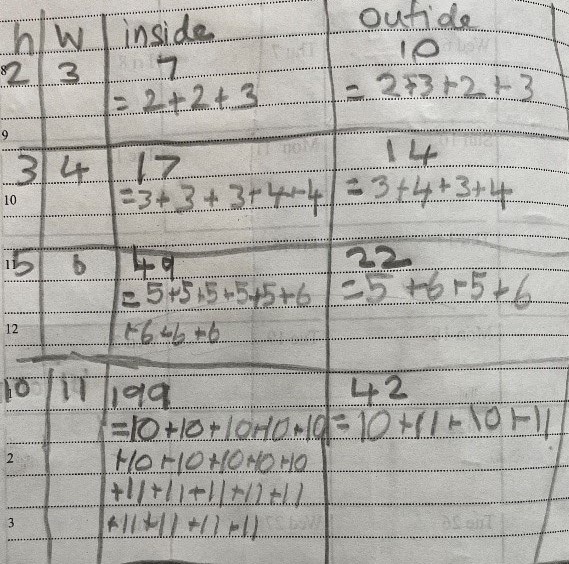 h w inside outide
8 2 3 7 10
= 2+2+3 = 2+3+2+3
9
3 4 17 14
10 =3+3+3+4+4 = 3+4+3+4
11 5 6 49 22
= 5+5+5+5+5+6 = 5+6+5+6
12 +6+6+6
10 11 199 42
=10+10+10+10+10 = 10+11+10+11
2 +10+10+10+10+10
+11+11+11+11+11
3 +11+11+11+11